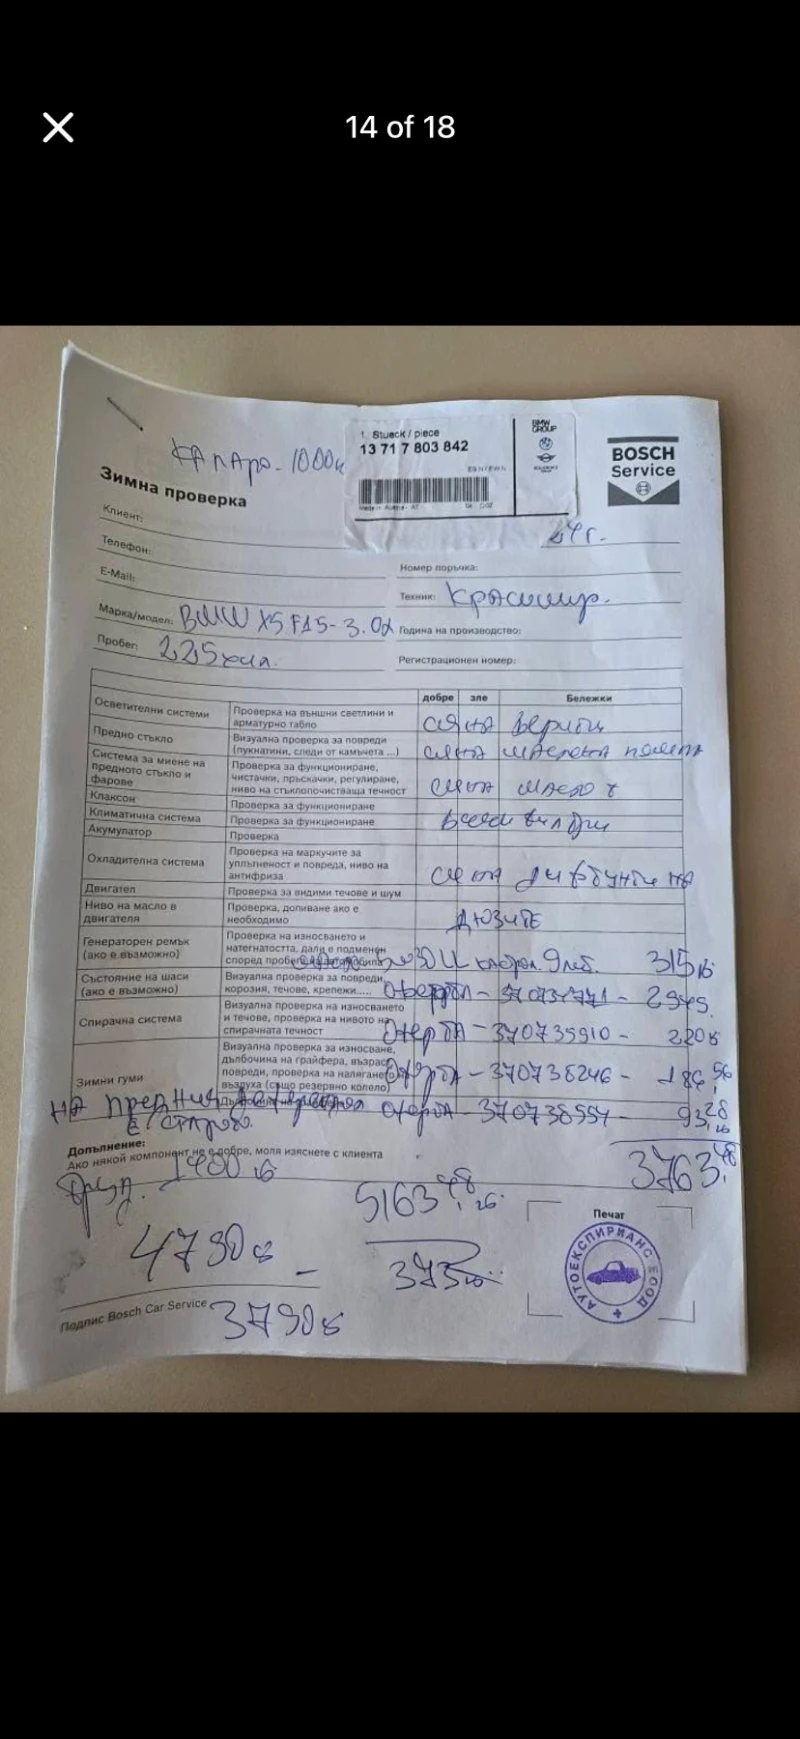 14 of 18
1 Stueck / piece
13 71 7 803 842
BMW GROUP
BOSCH
Service
Капаро - 1000
Зимна проверка
Клиент:
24г.
Телефон:
Номер поръчка:
E-Mail:
Техник: Красимир.
Марка/модел: BMW X5 F15 - 3.0d
Година на производство:
Пробег: 225 хил.
Регистрационен номер:
добре зле Бележки
Осветителни системи Проверка на външни светлини и арматурно табло смяна вериги
Предно стъкло Визуална проверка за повреди (пукнатини, следи от камъчета ...) смяна маслена помпа
Система за миене на предното стъкло и фарове Проверка за функциониране, чистачки, пръскачки, регулиране, ниво на стъклопочистваща течност смяна масло
Клаксон Проверка за функциониране
Климатична система Проверка за функциониране всички филтри
Акумулатор Проверка
Охладителна система Проверка на маркучите за уплътненост и повреда, ниво на антифриза смяна на
Двигател Проверка за видими течове и шум
Ниво на масло в двигателя Проверка, доливане ако е необходимо дюзите
Генераторен ремък (ако е възможно) Проверка на износването и натегнатостта, дали е подменен според пробега 315
Състояние на шаси (ако е възможно) Визуална проверка за повреди, корозия, течове, крепежи..... оферта - 370737771 - 2949.
Спирачна система Визуална проверка на износването и течове, проверка на нивото на спирачната течност оферта - 370735910 - 220
Зимни гуми Визуална проверка за износване, дълбочина на грайфера, възраст, повреди, проверка на налягането на въздуха (също резервно колело) оферта - 370738246 - 186 56
на предния оферта - 370738554 - 93,28
е старо
Допълнение:
Ако някой компонент не е добре, моля изяснете с клиента
3763,48
труд. 1400
5163,48
Печат
4790
373
АУТОЕКСПИРИАНС ЕООД
Подпис Bosch Car Service
3790